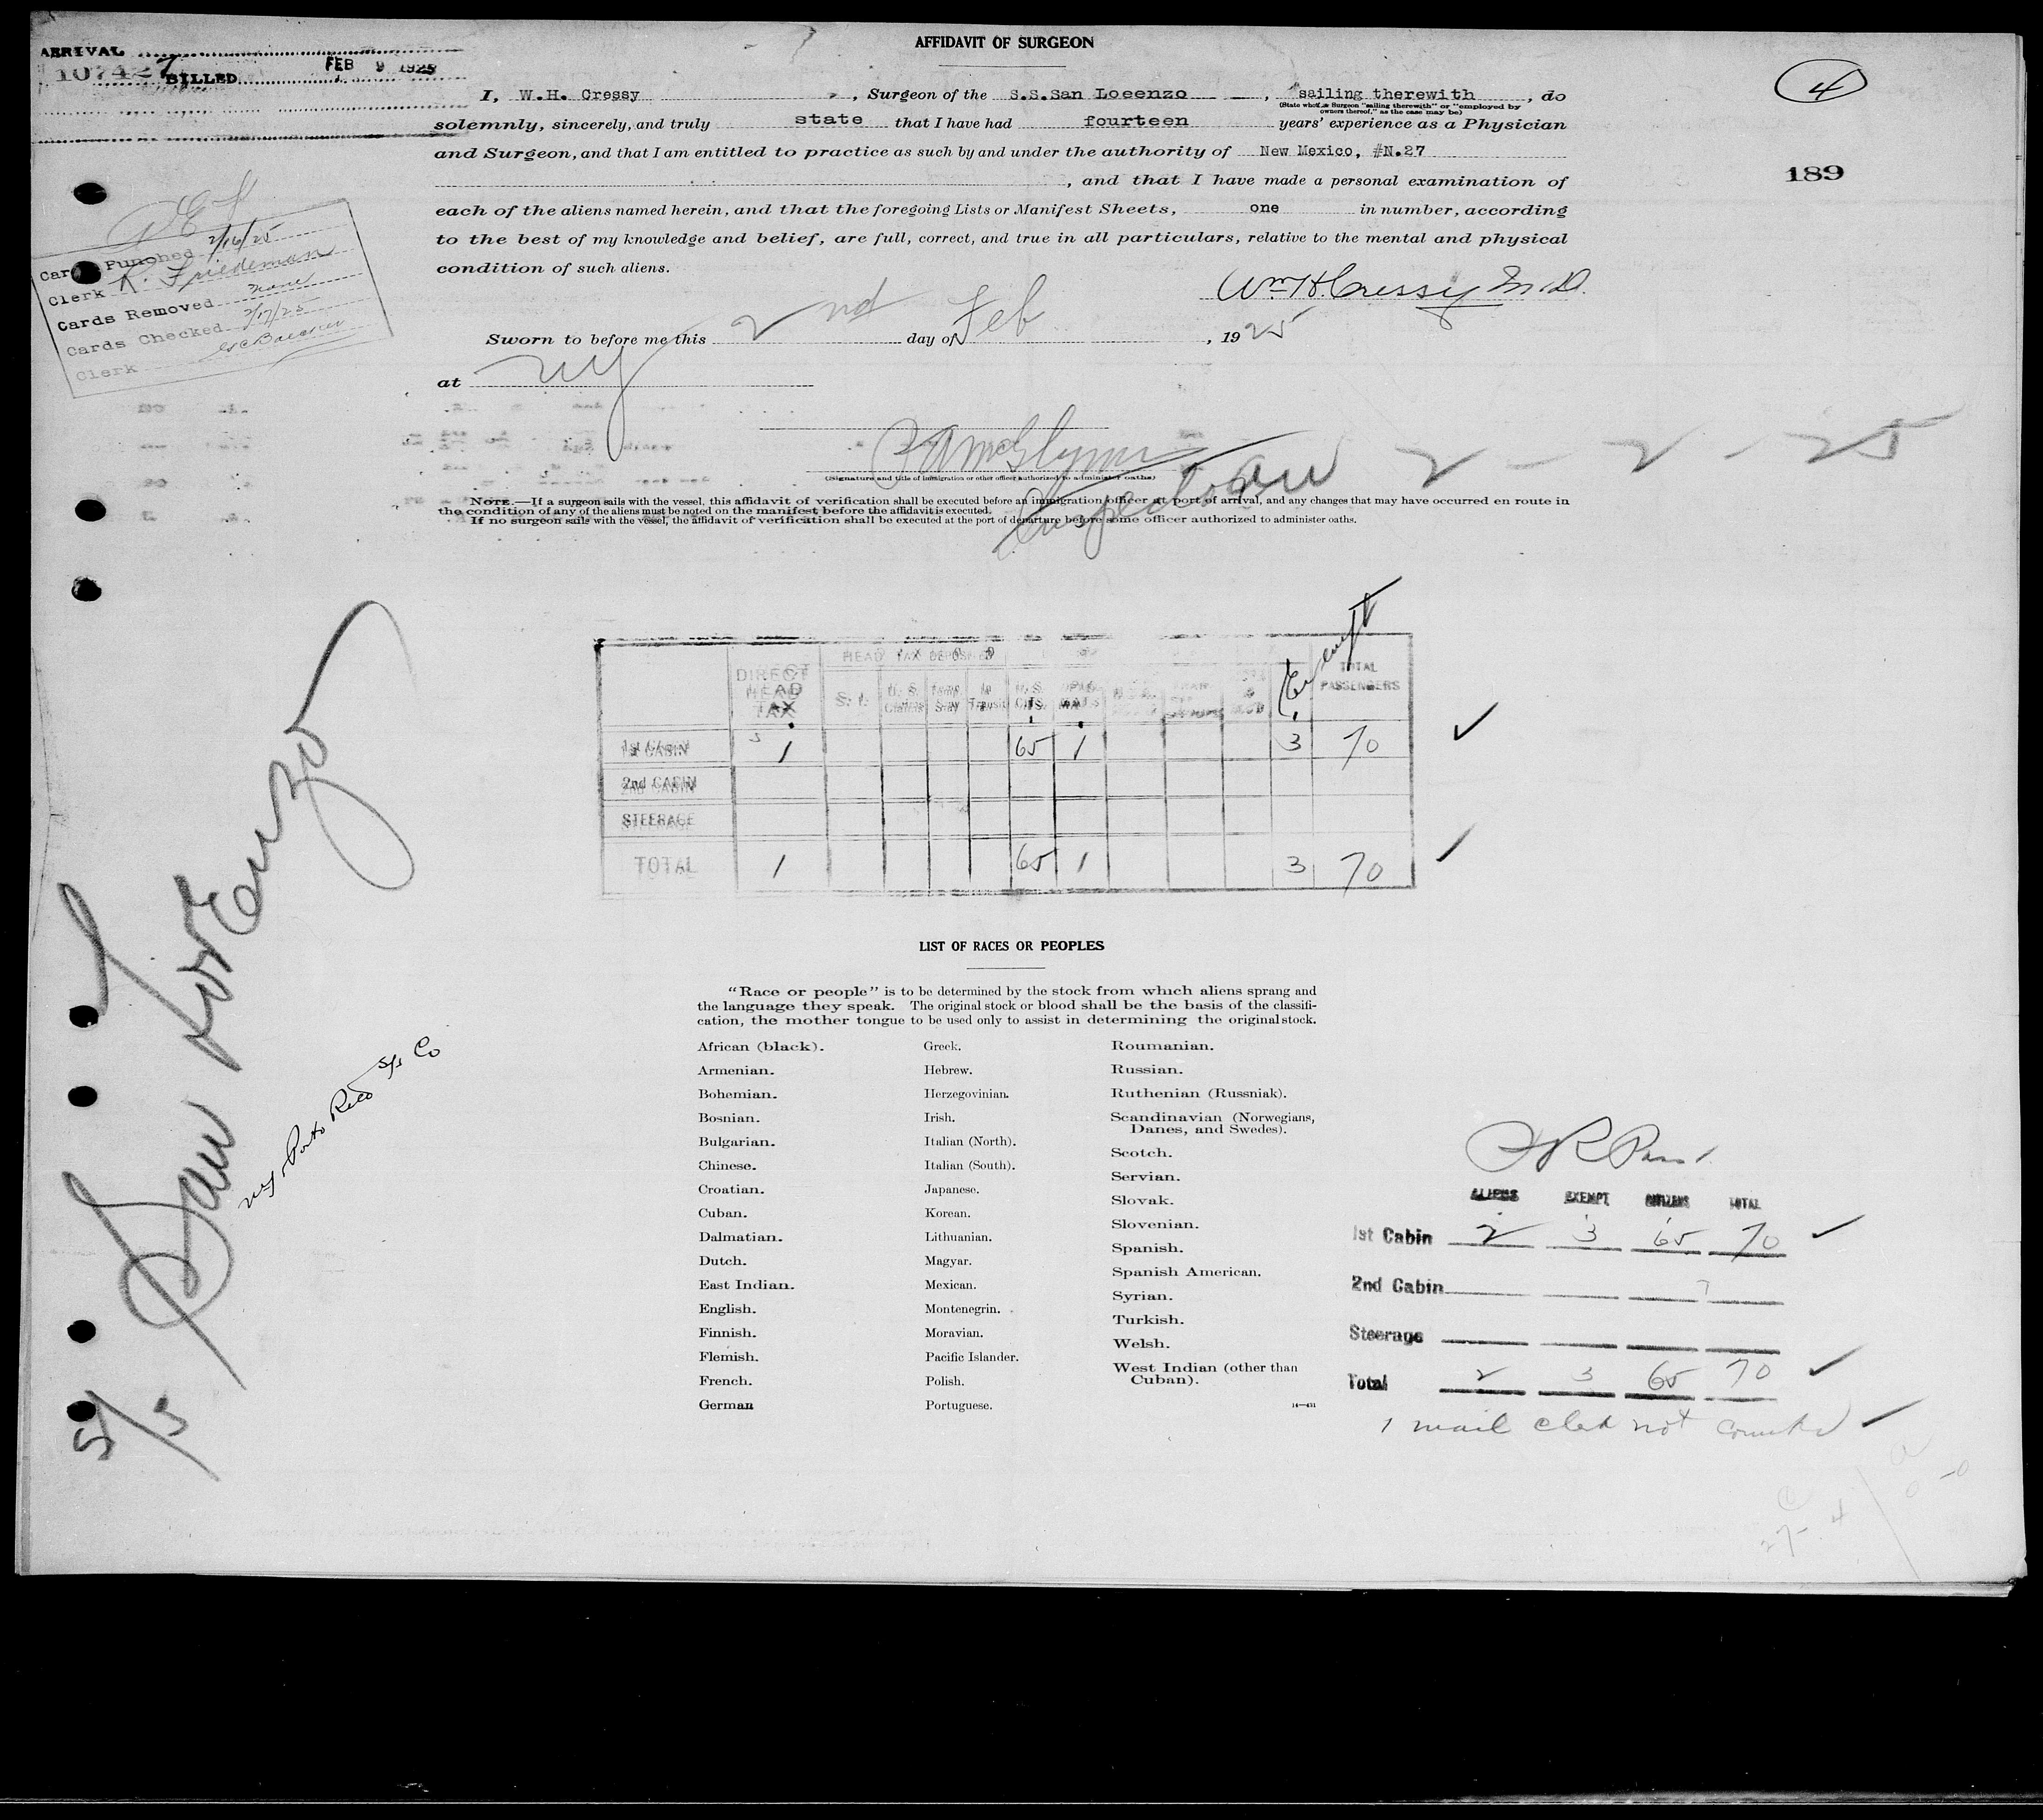 ARRIVAL
107427 BILLED FEB 9 1925
AFFIDAVIT OF SURGEON
4
189
I, W.H. Cressy, Surgeon of the S.S.San Loeenzo, sailing therewith, do
(State whether Surgeon "sailing therewith" or "employed by
owners thereof," as the case may be)
solemnly, sincerely, and truly state that I have had fourteen years' experience as a Physician
and Surgeon, and that I am entitled to practice as such by and under the authority of New Mexico, #N.27
, and that I have made a personal examination of
each of the aliens named herein, and that the foregoing Lists or Manifest Sheets, one in number, according
to the best of my knowledge and belief, are full, correct, and true in all particulars, relative to the mental and physical
condition of such aliens.
Wm H. Cressy M.D.
Sworn to before me this 2nd day of Feb, 1925
at NY
(Signature and title of immigration or other officer authorized to administer oaths)
Inspector
2-2-25
NOTE.—If a surgeon sails with the vessel, this affidavit of verification shall be executed before an immigration officer at port of arrival, and any changes that may have occurred en route in
the condition of any of the aliens must be noted on the manifest before the affidavit is executed.
If no surgeon sails with the vessel, the affidavit of verification shall be executed at the port of departure before some officer authorized to administer oaths.
Cards Punched 2/16/25
Clerk R. Friedeman
Cards Removed none
Cards Checked 2/17/25
Clerk
HEAD TAX DEPOSITED
DIRECT HEAD TAX S. I. U. S. In Transit U.S. CITS. Exempt TOTAL PASSENGERS
1st CABIN 1 65 1 3 70
2nd CABIN
STEERAGE
TOTAL 1 65 1 3 70
San Lorenzo
NY & Porto Rico S/S Co
LIST OF RACES OR PEOPLES
"Race or people" is to be determined by the stock from which aliens sprang and
the language they speak. The original stock or blood shall be the basis of the classifi-
cation, the mother tongue to be used only to assist in determining the original stock.
African (black).
Armenian.
Bohemian.
Bosnian.
Bulgarian.
Chinese.
Croatian.
Cuban.
Dalmatian.
Dutch.
East Indian.
English.
Finnish.
Flemish.
French.
German
Greek.
Hebrew.
Herzegovinian.
Irish.
Italian (North).
Italian (South).
Japanese.
Korean.
Lithuanian.
Magyar.
Mexican.
Montenegrin.
Moravian.
Pacific Islander.
Polish.
Portuguese.
Roumanian.
Russian.
Ruthenian (Russniak).
Scandinavian (Norwegians,
Danes, and Swedes).
Scotch.
Servian.
Slovak.
Slovenian.
Spanish.
Spanish American.
Syrian.
Turkish.
Welsh.
West Indian (other than
Cuban).
ALIENS EXEMPT CITIZENS TOTAL
1st Cabin 2 3 65 70
2nd Cabin
Steerage
Total 2 3 65 70
1 mail clerk not counted